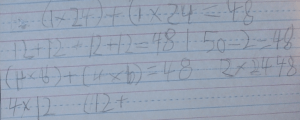 (1×24) + (1×24 = 48
12+12+12+12=48 | 50-2=48
(4×6)+(4×6)=48
4×12 (12+